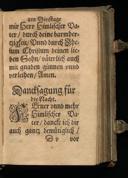 am Dienstage
mir Herr Himlischer Va-
ter / durch deine barmher-
tzigkeit / Vnnd durch Jhe-
sum Christum deinen lie-
ben Sohn / väterlich auch
mit gnaden günnen vnnd
verleihen / Amen.
Dancksagung für
die Nacht.
Herr vnnd mehr
Himlischer Va-
ter / dancke ich dir
auch gantz demütiglich /
vor